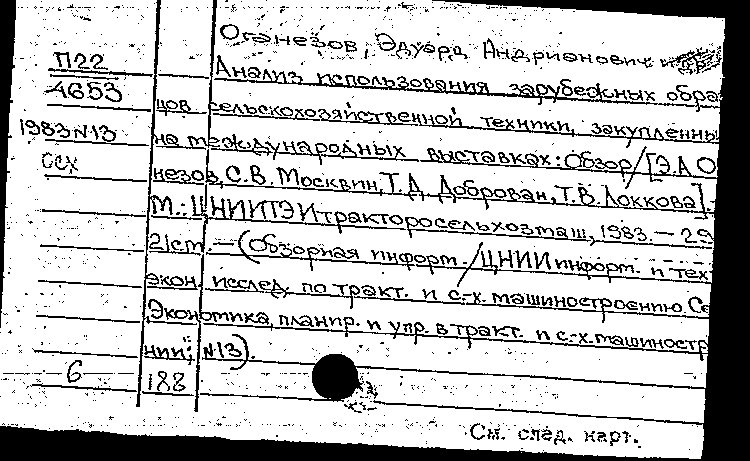 Оганезов, Эдуард Андрианович и
П22
4653
Анализ использования зарубежных обра
цов сельскохозяйственной техники, закупленны
1983 N13
на международных выставках: Обзор/[Э.А О
ССХ
незов, С.В. Москвин, Т.Д. Доброван, Т.В. Локкова].-
М.: ЦНИИТЭИтракторосельхозмаш, 1983.— 29
21 см.—(Обзорная информ./ЦНИИ информ. и тех
экон. исслед. по тракт. и с.-х. машиностроению. Се
"Экономика, планир. и упр. в тракт. и с.-х. машиностр
нии"; N13).
6
188
См. след. карт.